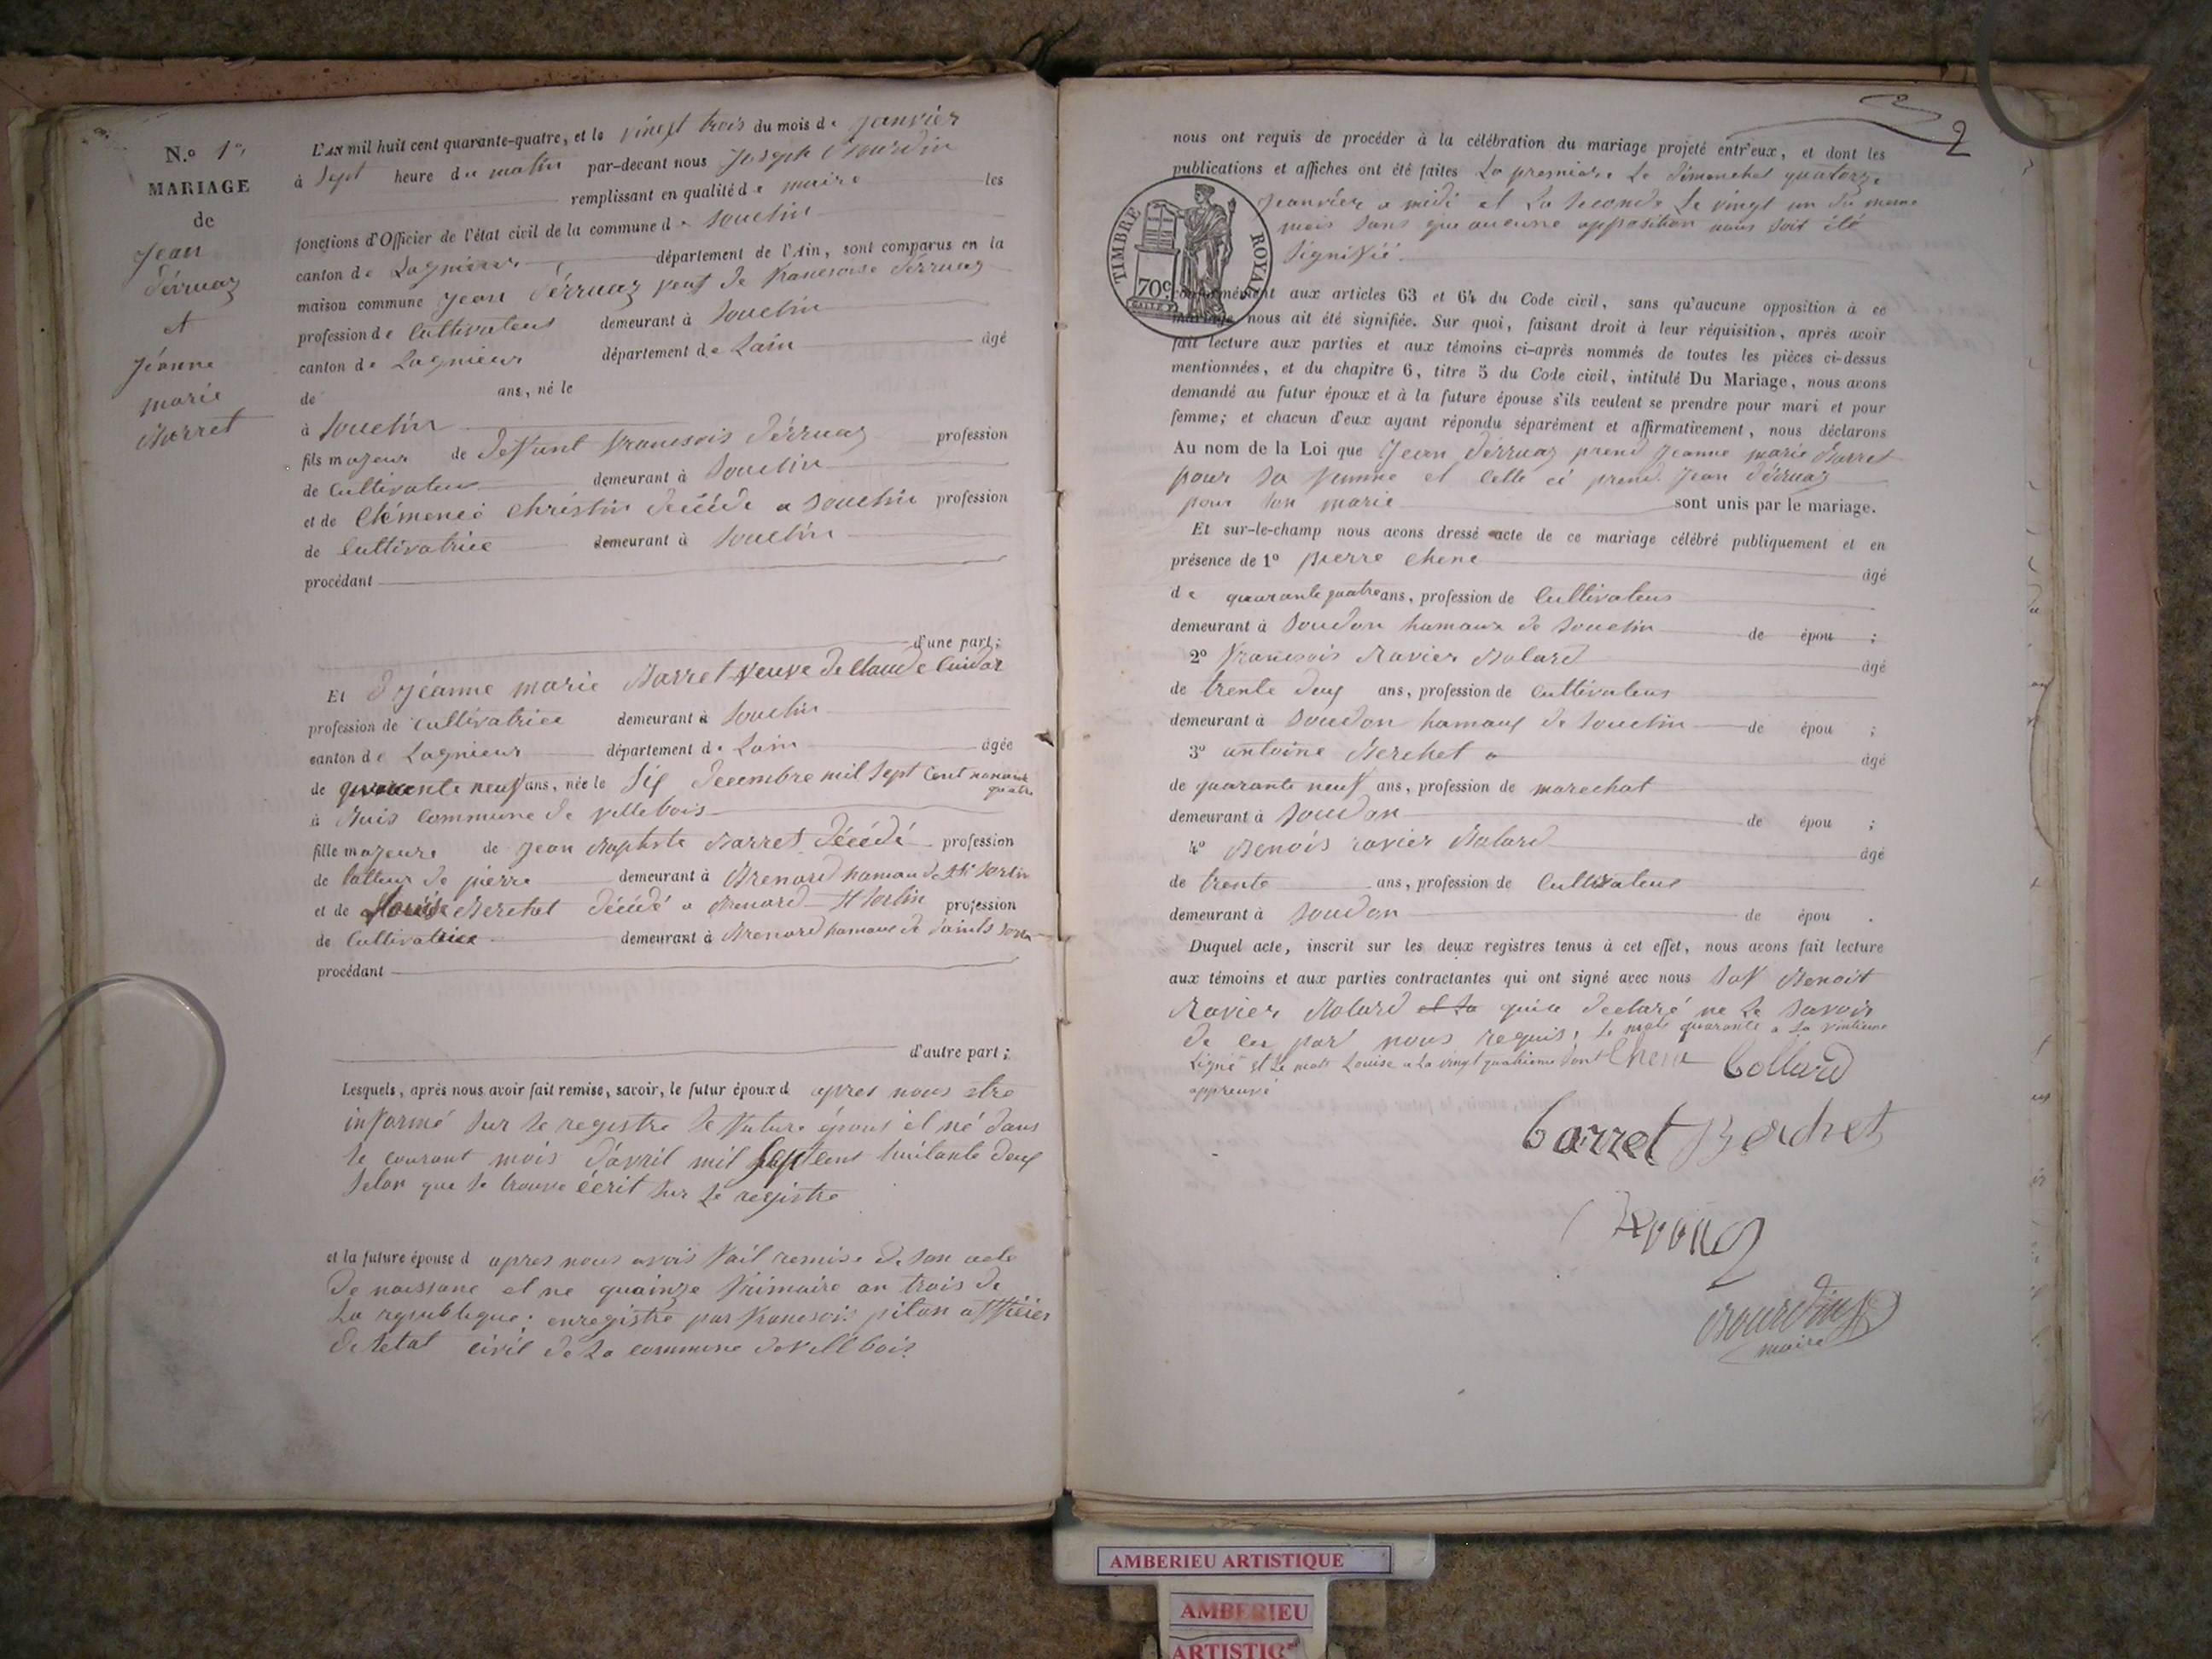 N.º 1er
MARIAGE
de
Jean
dérruaz
et
Jéanne
marie
Barret
L'AN mil huit cent quarante-quatre, et le vingt trois du mois de janvier
à sept heure du matin par-devant nous Joseph Bourdin
remplissant en qualité de maire les
fonctions d'Officier de l'état civil de la commune de Souclin
canton de Lagnieux département de l'Ain, sont comparus en la
maison commune jean dérruaz veuf de francoise dérruaz
profession de Cultivateur demeurant à Souclin
canton de Lagnieux département de Lain âgé
de ans, né le
à Souclin
fils majeur de defunt francsois dérruaz profession
de Cultivateur demeurant à Souclin
et de Clémence Christin décédé a Souclin profession
de Cultivatrice demeurant à Souclin
procédant
d'une part;
Et d jéanne marie Barret veuve de Claude Cuidar
profession de cultivatrice demeurant à Souclin
canton de Lagnieux département de Lain âgée
de quarente neuf ans, née le six decembre mil sept cent nonante
quatre
à Buis Commune de villebois
fille majeure de jean Baptiste Barret décédé profession
de talleur de pierre demeurant à Brenard hamau de St Sorlin
et de Louise Berchet décédé a Brenard St Sorlin profession
de Cultivatrice demeurant à Brenard hamaux de saints
procédant
d'autre part;
Lesquels, après nous avoir fait remise, savoir, le futur époux d apres nous etre
informé sur le registre le future épous et né dans
le courant mois d'avril mil sept cent huitante deux
selon que se trouve écrit sur le registre
et la future épouse d apres nous avoir fait remise de son acte
de naissane et ne quainze frimaire an trois de
La republique; enregistré par francsois pitan officier
de letat civil de La commune de villbois
2
nous ont requis de procéder à la célébration du mariage projeté entr'eux, et dont les
publications et affiches ont été faites La premiere Le dimenchet quatorze
jeanvier a midi et La seconde Le vingt un du meme
mois sans que aucune opposition nous soit été
signifié.
TIMBRE ROYAL
70c
conformément aux articles 63 et 64 du Code civil, sans qu'aucune opposition à ce
mariage nous ait été signifiée. Sur quoi, faisant droit à leur réquisition, après avoir
fait lecture aux parties et aux témoins ci-après nommés de toutes les pièces ci-dessus
mentionnées, et du chapitre 6, titre 5 du Code civil, intitulé Du Mariage, nous avons
demandé au futur époux et à la future épouse s'ils veulent se prendre pour mari et pour
femme; et chacun d'eux ayant répondu séparément et affirmativement, nous déclarons
Au nom de la Loi que Jean dérruaz prend jeanne marie Barret
pour sa femme et Celle ci prend jean dérruaz
pour son marie sont unis par le mariage.
Et sur-le-champ nous avons dressé acte de ce mariage célébré publiquement et en
présence de 1º pierre Chene âgé
de quarante quatre ans, profession de Cultivateur
demeurant à Soudon hamaux de Souclin de épou ;
2º francsois Ravier Molard âgé
de trente deux ans, profession de Cultivateur
demeurant à Soudon hamaux de Souclin de épou ;
3º antoine Berchet âgé
de quarante neuf ans, profession de marechat
demeurant à Soudon de épou ;
4º Benois ravier Molard âgé
de trente ans, profession de Cultivateur
demeurant à Soudon de épou .
Duquel acte, inscrit sur les deux registres tenus à cet effet, nous avons fait lecture
aux témoins et aux parties contractantes qui ont signé avec nous Sof Benoit
Ravier Molard et sa quia declaré ne le savoir
de ce par nous requis; Le mots quarante a La
Ligne et Le mots Louise a La vingt quatrieme sont
appreuvé
Chene Collard
barret Berchet
Bourdin
maire
AMBERIEU ARTISTIQUE
AMBERIEU
ARTISTIQ